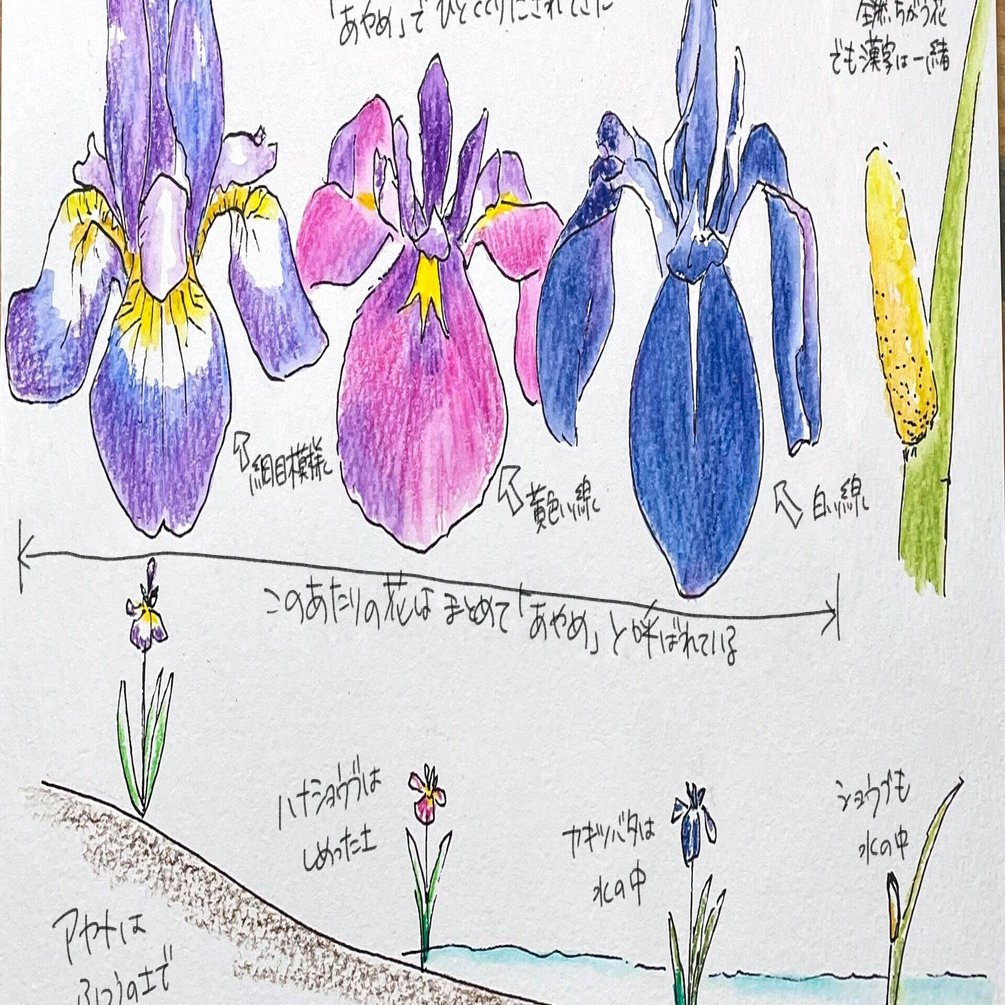 「あやめ」でひとくくりにされてきた
全然ちがう花
でも漢字は一緒
網目模様
黄色い線
白い線
このあたりの花はまとめて「あやめ」と呼ばれている
ハナショウブは
しめった土
カキツバタは
水の中
ショウブも
水の中
アヤメは
ふつうの土で